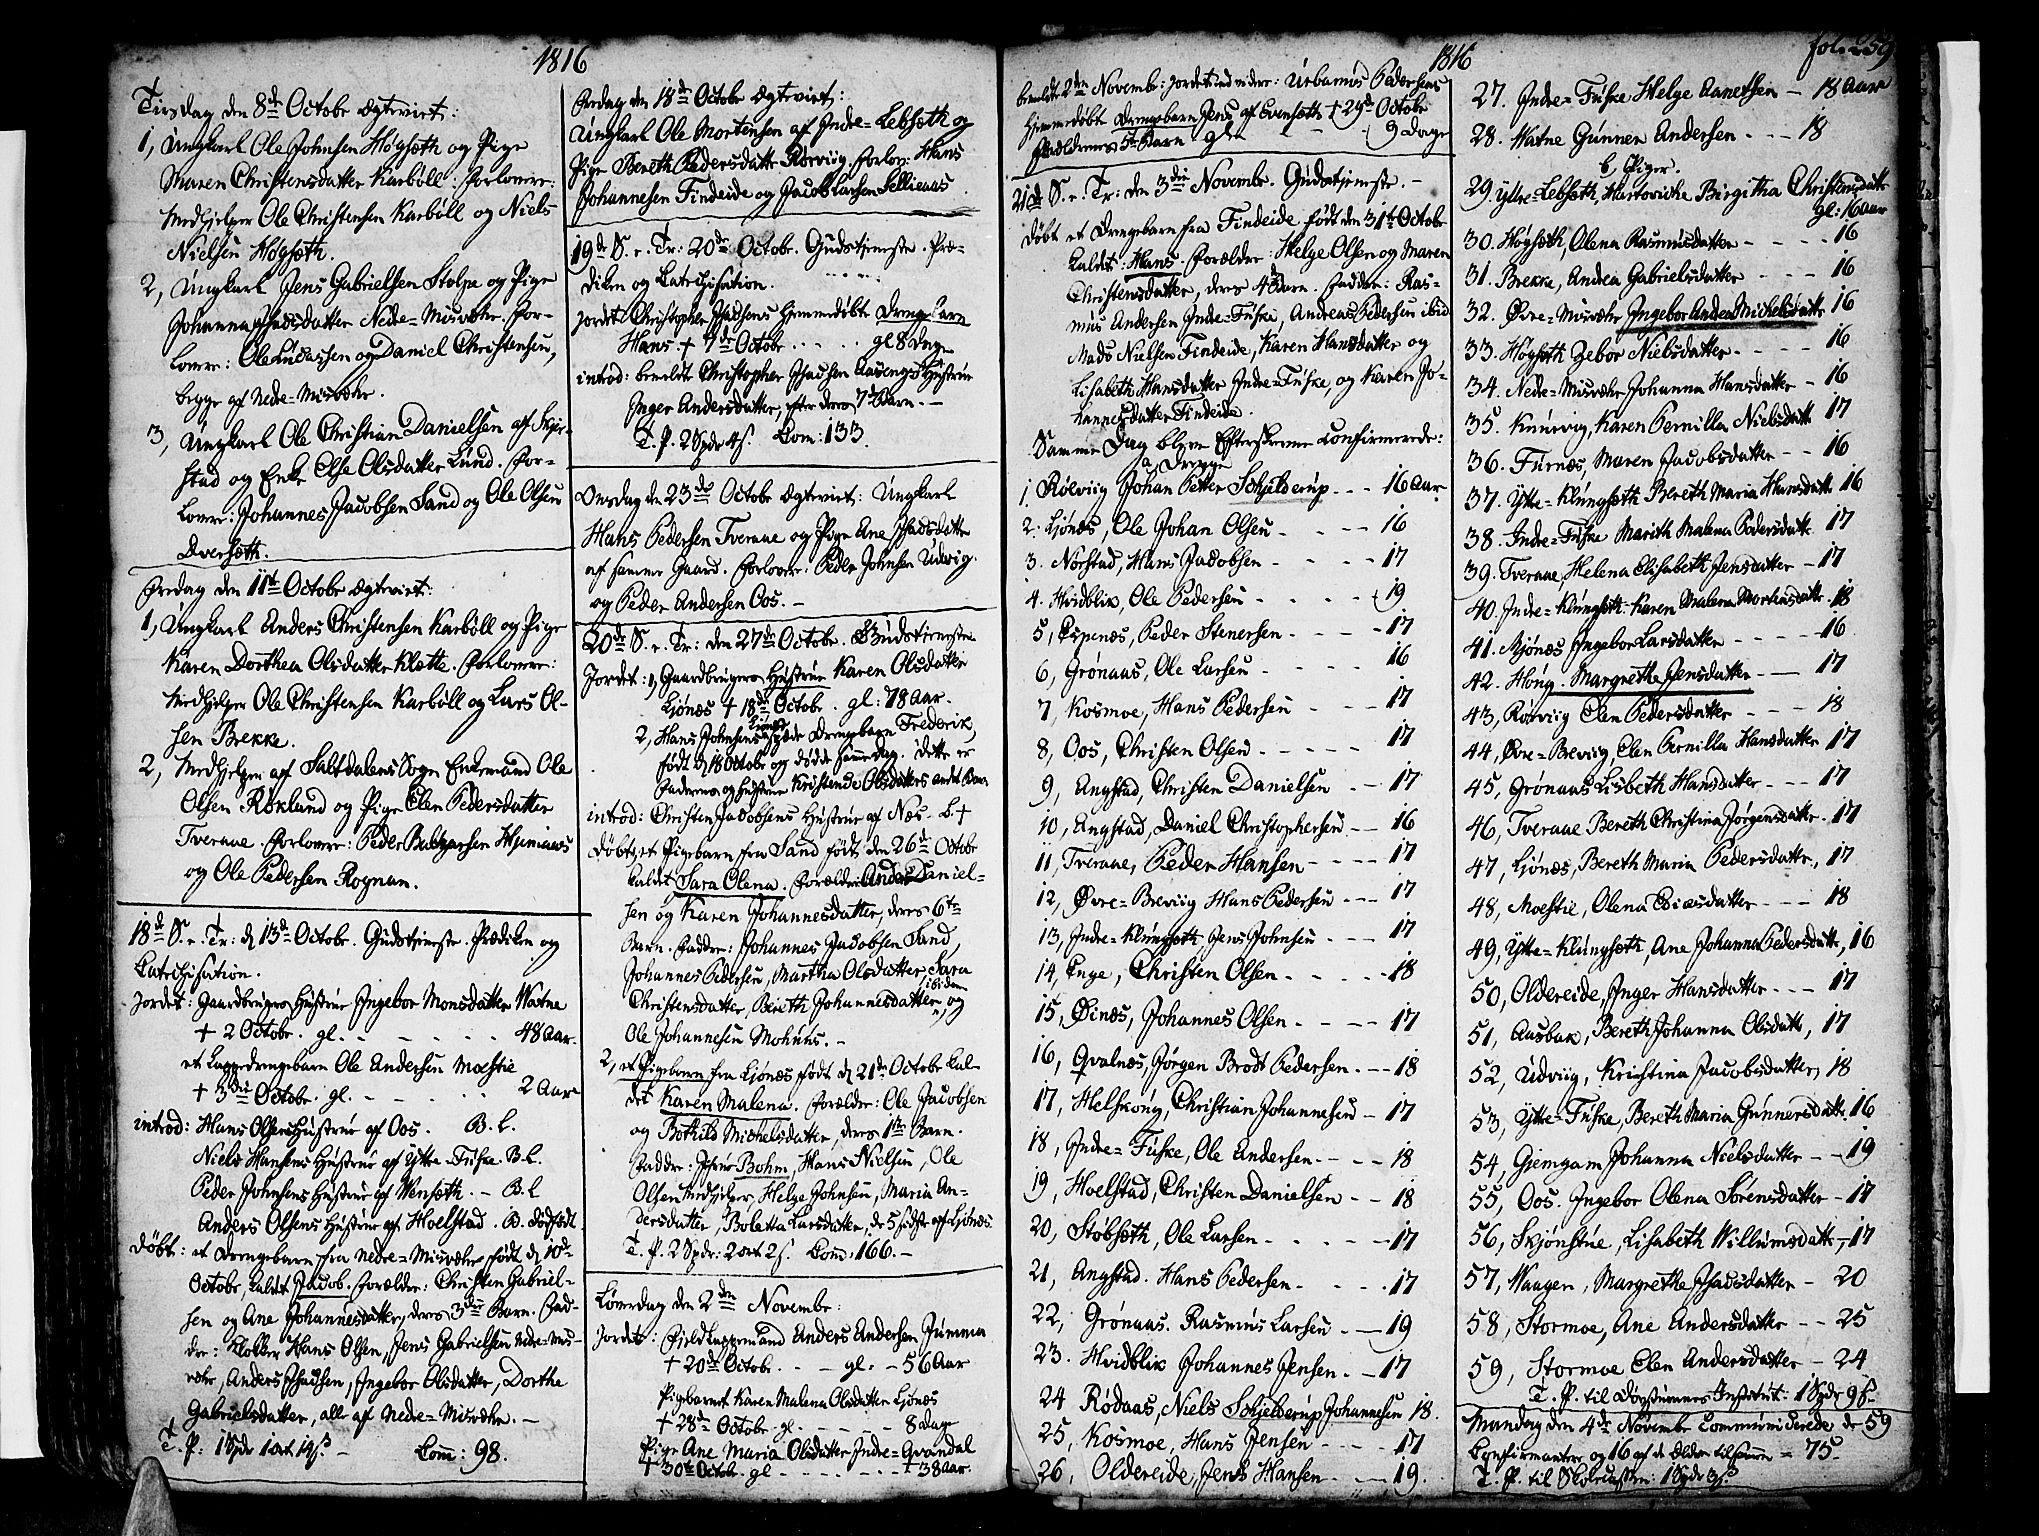 1816
Tirsdag den 8de Octobr ægtevict:
1, Ungkarl Ole Johnsen Høgsæth og Pige
Maren Christensdatter Karbøll: Forlovere:
Medhjelper Ole Christensen Karbøll og Niels
Nielsen Høgsæth.
2, Ungkarl Jens Gabrielsen Stolpe og Pige
Johanna Isachsdatter Nedre-Misvær. For-
lovere: Ole Lucassen og Daniel Christensen,
begge af Nedre-Misvær.
3, Ungkarl Ole Christian Danielsen af Skjer-
stad og Enke Else Olsdatter Lund. For-
lovere: Johannes Jacobsen Sand og Ole Olsen
Dversæth.
Fredag den 11te Octobr ægtevict:
1, Ungkarl Anders Christensen Karbøll og Pige
Karen Dorthea Olsdatter Klette. Forlovere:
Medhjelper Ole Christensen Karbøll og Lars Ol-
sen Brekke.
2, Medhjelper af Saltdalens Sogn Enkemand Ole
Olsen Røkland og Pige Elen Pedersdatter
Tveraae. Forlovere: Peder Baltzersen
og Ole Pedersen Rognan.
18de S. e. Tr: d 13de Octobr. Gudstjeneste. Prædiken og
Catechisation.
Jordet: Gaardbrugers Hustrue Ingebor Monsdatter Vatne
+ 2 Octobr. gl. - - - - 48 Aar.
et Lappedrengebarn Ole Andersen Moestie
+ 3die Octobr. gl. - - - - 2 Aar
introd: Hans Olsens Hustrue af Oos. B. l.
Niels Hansens Hustrue af Ytre-Fuske. B. l.
Peder Johnsens Hustrue af Vensæth. - B. l
Anders Olsens Hustrue af Hoelstad. B. dødfødt.
Døbt: et Drengebarn fra Nedre-Misvær født d 10de
Octobr, kaldet Jacob. Forældre: Christen Gabriel-
sen og Ane Johannesdatter, deres 3die Barn. Fad-
dere: Klokker Hans Olsen, Jens Gabrielsen Nedre-Mis-
vær, Anders Isachsen, Ingebor Olsdatter, Dorthe
Gabrielsdatter, alle af Nedre-Misvær. -
T. P: 1 Spdr 1 ort 19 s - Com: 98.
Fredag den 18de Octobr ægtevict:
Ungkarl Ole Mortensen af Indre-Lebsæth og
Pige Bereth Pedersdatter Rørviig. Forlov: Hans
Johannesen Findeide og Jacob Larsen Sellienaas
19de S. e. Tr: 20de Octobr. Gudstjeneste. Præ-
diken og Catechisation.
Jordet Christopher Isachsens hjemmedøbte Drengebarn
Hans + 7de Octobr - - - gl 8 Dage
introd: bemeldte Christopher Isachsen Aasengs Hustrue
Inger Andersdatter, efter deres 7de Barn. -
T. P. 2 Spdr 4 s. Com: 133.
Onsdag den 23de Octobr ægtevict: Ungkarl
Hans Pedersen Tveraae og Pige Ane Isachsdatter
af samme Gaard. Forlovere: Peder Johnsen Udviig.
og Peder Andersen Oos. -
20de S. e. Tr: den 27de Octobr. Gudstjeneste
Jordet: 1, Gaardbrugers Hustrue Karen Olsdatter
Ljønæs + 18de Octobr. gl: 78 Aar.
2, Hans Johnsens Ljønæs spæde Drengebarn Frederik,
født d 18 Octobr og døde samme dag. dette er
Faderens og Hustrue Kristense Olsdatters andet Barn
introd: Christen Jacobsens Hustrue af Næs. B. +
Døbt, et Pigebarn fra Sand født den 26de Octobr
kaldet Sara Olena. Forældre: Anders Daniel-
sen og Karen Johannesdatter, deres 6te
Barn. Faddere: Johannes Jacobsen Sand,
Johannes Pedersen, Martha Olsdatter, Sara
Christensdatter, Bereth Johannesdatter ibidem, og
Ole Johannesen Mohuus. -
2, et Pigebarn fra Ljønæs født d 21de Octobr kal-
det Karen Malena. Forældre: Ole Jacobsen
og Bothild Michelsdatter, deres 1ste Barn.
Faddere: Bohm, Hans Nielsen, Ole
Olsen Medhjelper, Helge Johnsen, Maria An-
dersdatter, Boletta Larsdatter, de 5 sidste af Ljønæs.
T. P. 2 Spdr: 2 ort 2 s. Com: 166. -
Løverdag den 2den Novembr:
Jordet: Fjeldlappemand Anders Andersen Jumma
+ 20de Octobr. - - gl: - 56 Aar
Pigebarnet Karen Malena Olsdatter Ljønæs
+ 28de Octobr gl. - - - 8 Dage
Pige Ane Maria Olsdatter Indre-Qvandal
+ 30te Octobr. gl - - - - + 38 Aar.
1816
fol. 259
bemeldte 2den Novembr: Jordet end videre: Urbanus Pedersens
hjemmedøbte Drengebarn Jens af Evensæth + 29de Octobr
Forældrenes 5te Barn gl. - - 9 Dage
21de S. e. Tr: den 3die Novembr. Gudstjeneste. -
Døbt et Drengebarn fra Findeide født den 31te Octobr
kaldet: Hans. Forældre: Helge Olsen og Maren
Christensdatter, deres 4de Barn. Faddere: Ras-
mus Andersen Indre-Fuske, Andreas Pedersen ibid
Mads Nielsen Findeide, Karen Hansdatter og
Lisabeth Hansdatter Indre-Fuske, og Karen Jo-
hannesdatter Findeide.
Samme Dag bleve Efterskrevne Confirmerede:
a, Drenge
1 Rølviig Johan Petter Schjelderup - - - 16 Aar
2. Ljønæs, Ole Johan Olsen - - - - 16
3. Nørstad, Hans Jacobsen - - - - 17
4. Hvidblik, Ole Pedersen - - - - 19
5, Espenæs, Peder Stenersen - - - - 17
6, Grønaas, Ole Larsen - - - - 16
7, Kosmoe, Hans Pedersen - - - - 17
8, Oos, Christen Olsen - - - - 17
9, Angstad, Christen Danielsen - - 17
10, Angstad, Daniel Christophersen - - 16
11, Tveraae, Peder Hansen - - - - 17
12, Øvre-Breviig Hans Pedersen - - - 17
13, Indre-Klungsæth Jens Johnsen - - - 17
14, Enge, Christen Olsen - - - - 18
15, Øinæs, Johannes Olsen - - - - 17
16, Qvalnæs, Jørgen Brodt Pedersen. - - 18
17, Helskoug, Christian Johannesen - 17
18, Indre-Fuske, Ole Andersen - - - 18
19, Hoelstad, Christen Danielsen - - 18
20, Støbsæth, Ole Larsen - - - - 17
21, Angstad. Hans Pedersen - - - - 17
22, Grønaas. Rasmus Larsen - - - 19
23. Hvidblik Johannes Jensen. - - 17
24 Rødaas, Niels Schjelderup Johannesen 18.
25, Kosmoe, Hans Jensen - - - - 17
26, Oldereide, Jens Hansen - - - 19.
27. Indre-Fuske Helge Aanetsen - 18 Aar
28. Vatne Gunner Andersen - - - 18
b, Piger.
29 Ytre-Lebsæth, Hartvicke Birgitha Christensdatter
gl: 16 Aar
30. Høgsæth, Olena Rasmusdatter - - - - 16
31. Brekke, Andrea Gabrielsdatter - - - 16
32. Øvre-Misvær Ingebor Andrea Michelsdatter 16
33. Høgsæth Zebor Nielsdatter - - - - 16
34. Nedre-Misvær Johanna Hansdatter - 16
35. Knurviig, Karen Pernilla Nielsdatter 17
36. Furnæs, Maren Jacobsdatter - - 16
37. Ytre-Klungsæth Bereth Maria Hansdatter 16
38. Indre-Fuske Marith Malena Pedersdatter 17
39. Tveraae, Helena Elisabeth Jensdatter - 17
40. Indre-Klungsæth Karen Malena Mortensdatter. 18
41. Mjønæs Ingebor Larsdatter - - - - 16
42. Høug. Margrethe Jensdatter - - 17
43, Rørviig Elen Pedersdatter - - - 18
44, Øvre-Breviig, Elen Pernilla Hansdatter 17
45, Grønaas Lisbeth Hansdatter - - - 17
46, Tveraae Bereth Christina Jørgensdatter. 17
47, Ljønæs, Bereth Maria Pedersdatter, 17
48, Moestie, Olena Esiæsdatter - - - 18
49, Ytre-Klungsæth, Ane Johanna Pedersdatter, 16
50, Oldereide, Inger Hansdatter - - - 17
51, Aasbak, Bereth Johanna Olsdatter, 17
52, Udviig, Kristina Jacobsdatter, 18
53, Ytre-Fuske, Bereth Maria Gunnersdatter. 16
54, Gjemgam Johanna Nielsdatter - - 19
55, Oos. Ingebor Olena Sørensdatter - 17
56, Skjønstue, Lisabeth Willumsdatter, - 17
57, Vaagen, Margrethe Isachsdatter - 20
58, Stormoe, Ane Andersdatter - - 25
59, Stormoe Elen Andersdatter - 24
T. P. til Døvstummes Institut: 1 Spdr 9 s -
Mandag den 4de Novembr Communicerede de 59
Confirmanter og 16 af de Ældre tilsammen = 75.
T. P. til Skolecassen: 1 Spdr 3 s.